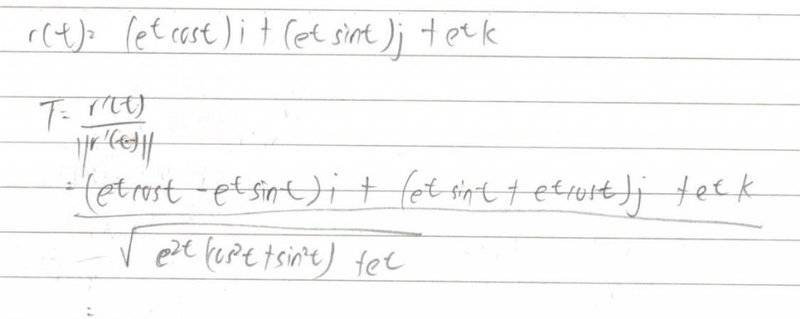 r(t)= (e^t cost)i + (e^t sint)j + e^t k
T= r'(t)
||r'(t)||
= (e^t cost - e^t sint)i + (e^t sint + e^t cost)j + e^t k
√ e^2t (cos²t + sin²t) + e^t
=